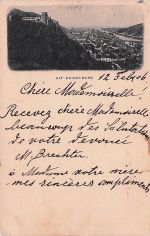 ALT HEIDELBERG
12 Feb. 06
Chère Mademoiselle!
Recevez chère Mademoiselle
beaucoup des Salutations
de votre dévoué
M. Brechter
à Madame votre mère
mes sincères compliments